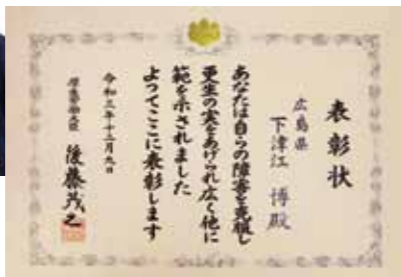 表彰状
広島県
下津江 博 殿
あなたは自らの障害を克服し
更生の実をあげられ広く他に
範を示されました
よってここに表彰します
令和三年十二月九日
厚生労働大臣 後藤茂之